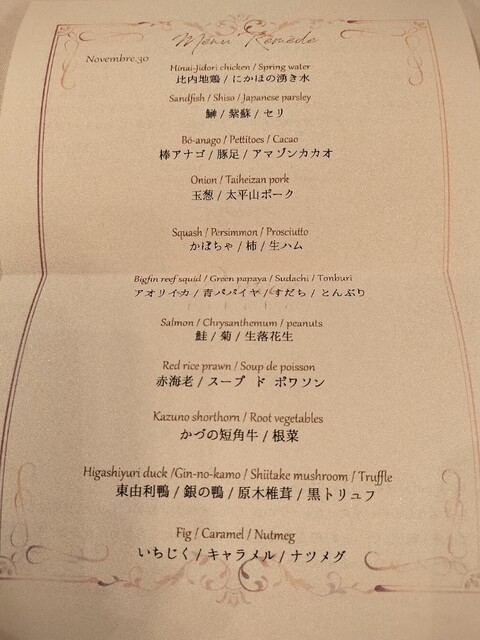 Menu Remède
Novembre.30
Hinai-Jidori chicken / Spring water
比内地鶏 / にかほの湧き水
Sandfish / Shiso / Japanese parsley
鰰 / 紫蘇 / セリ
Bō-anago / Pettitoes / Cacao
棒アナゴ / 豚足 / アマゾンカカオ
Onion / Taiheizan pork
玉葱 / 太平山ポーク
Squash / Persimmon / Prosciutto
かぼちゃ / 柿 / 生ハム
Bigfin reef squid / Green papaya / Sudachi / Tonburi
アオリイカ / 青パパイヤ / すだち / とんぶり
Salmon / Chrysanthemum / peanuts
鮭 / 菊 / 生落花生
Red rice prawn / Soup de poisson
赤海老 / スープ ド ポワソン
Kazuno shorthorn / Root vegetables
かづの短角牛 / 根菜
Higashiyuri duck /Gin-no-kamo / Shiitake mushroom / Truffle
東由利鴨 / 銀の鴨 / 原木椎茸 / 黒トリュフ
Fig / Caramel / Nutmeg
いちじく / キャラメル / ナツメグ